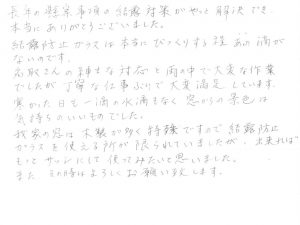 長年の懸案事項の結露対策がやっと解決でき、
本当にありがとうございました。
結露防止ガラスは本当にびっくりする程 あの滴が
ないのです。
名取さんの紳士な対応と雨の中で大変な作業
でしたが丁寧な仕事ぶりで大変満足しています。
寒かった日も一滴の水滴もなく窓からの景色は
気持ちのいいものでした。
我家の窓は木製が多く特殊ですので結露防止
ガラスを使える所が限られていましたが、出来れば
もっとサッシにして使ってみたいと思いました。
また、その時はよろしくお願い致します。